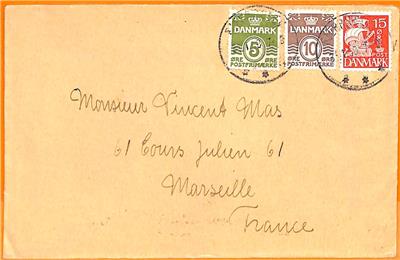 DANMARK
5
ØRE ØRE
POSTFRIMÆRKE
DANMARK
10
ØRE ØRE
POSTFRIMÆRKE
15
ØRE
POST
DANMARK
Monsieur Vincent Mas
61 Cours Julien 61
Marseille
France